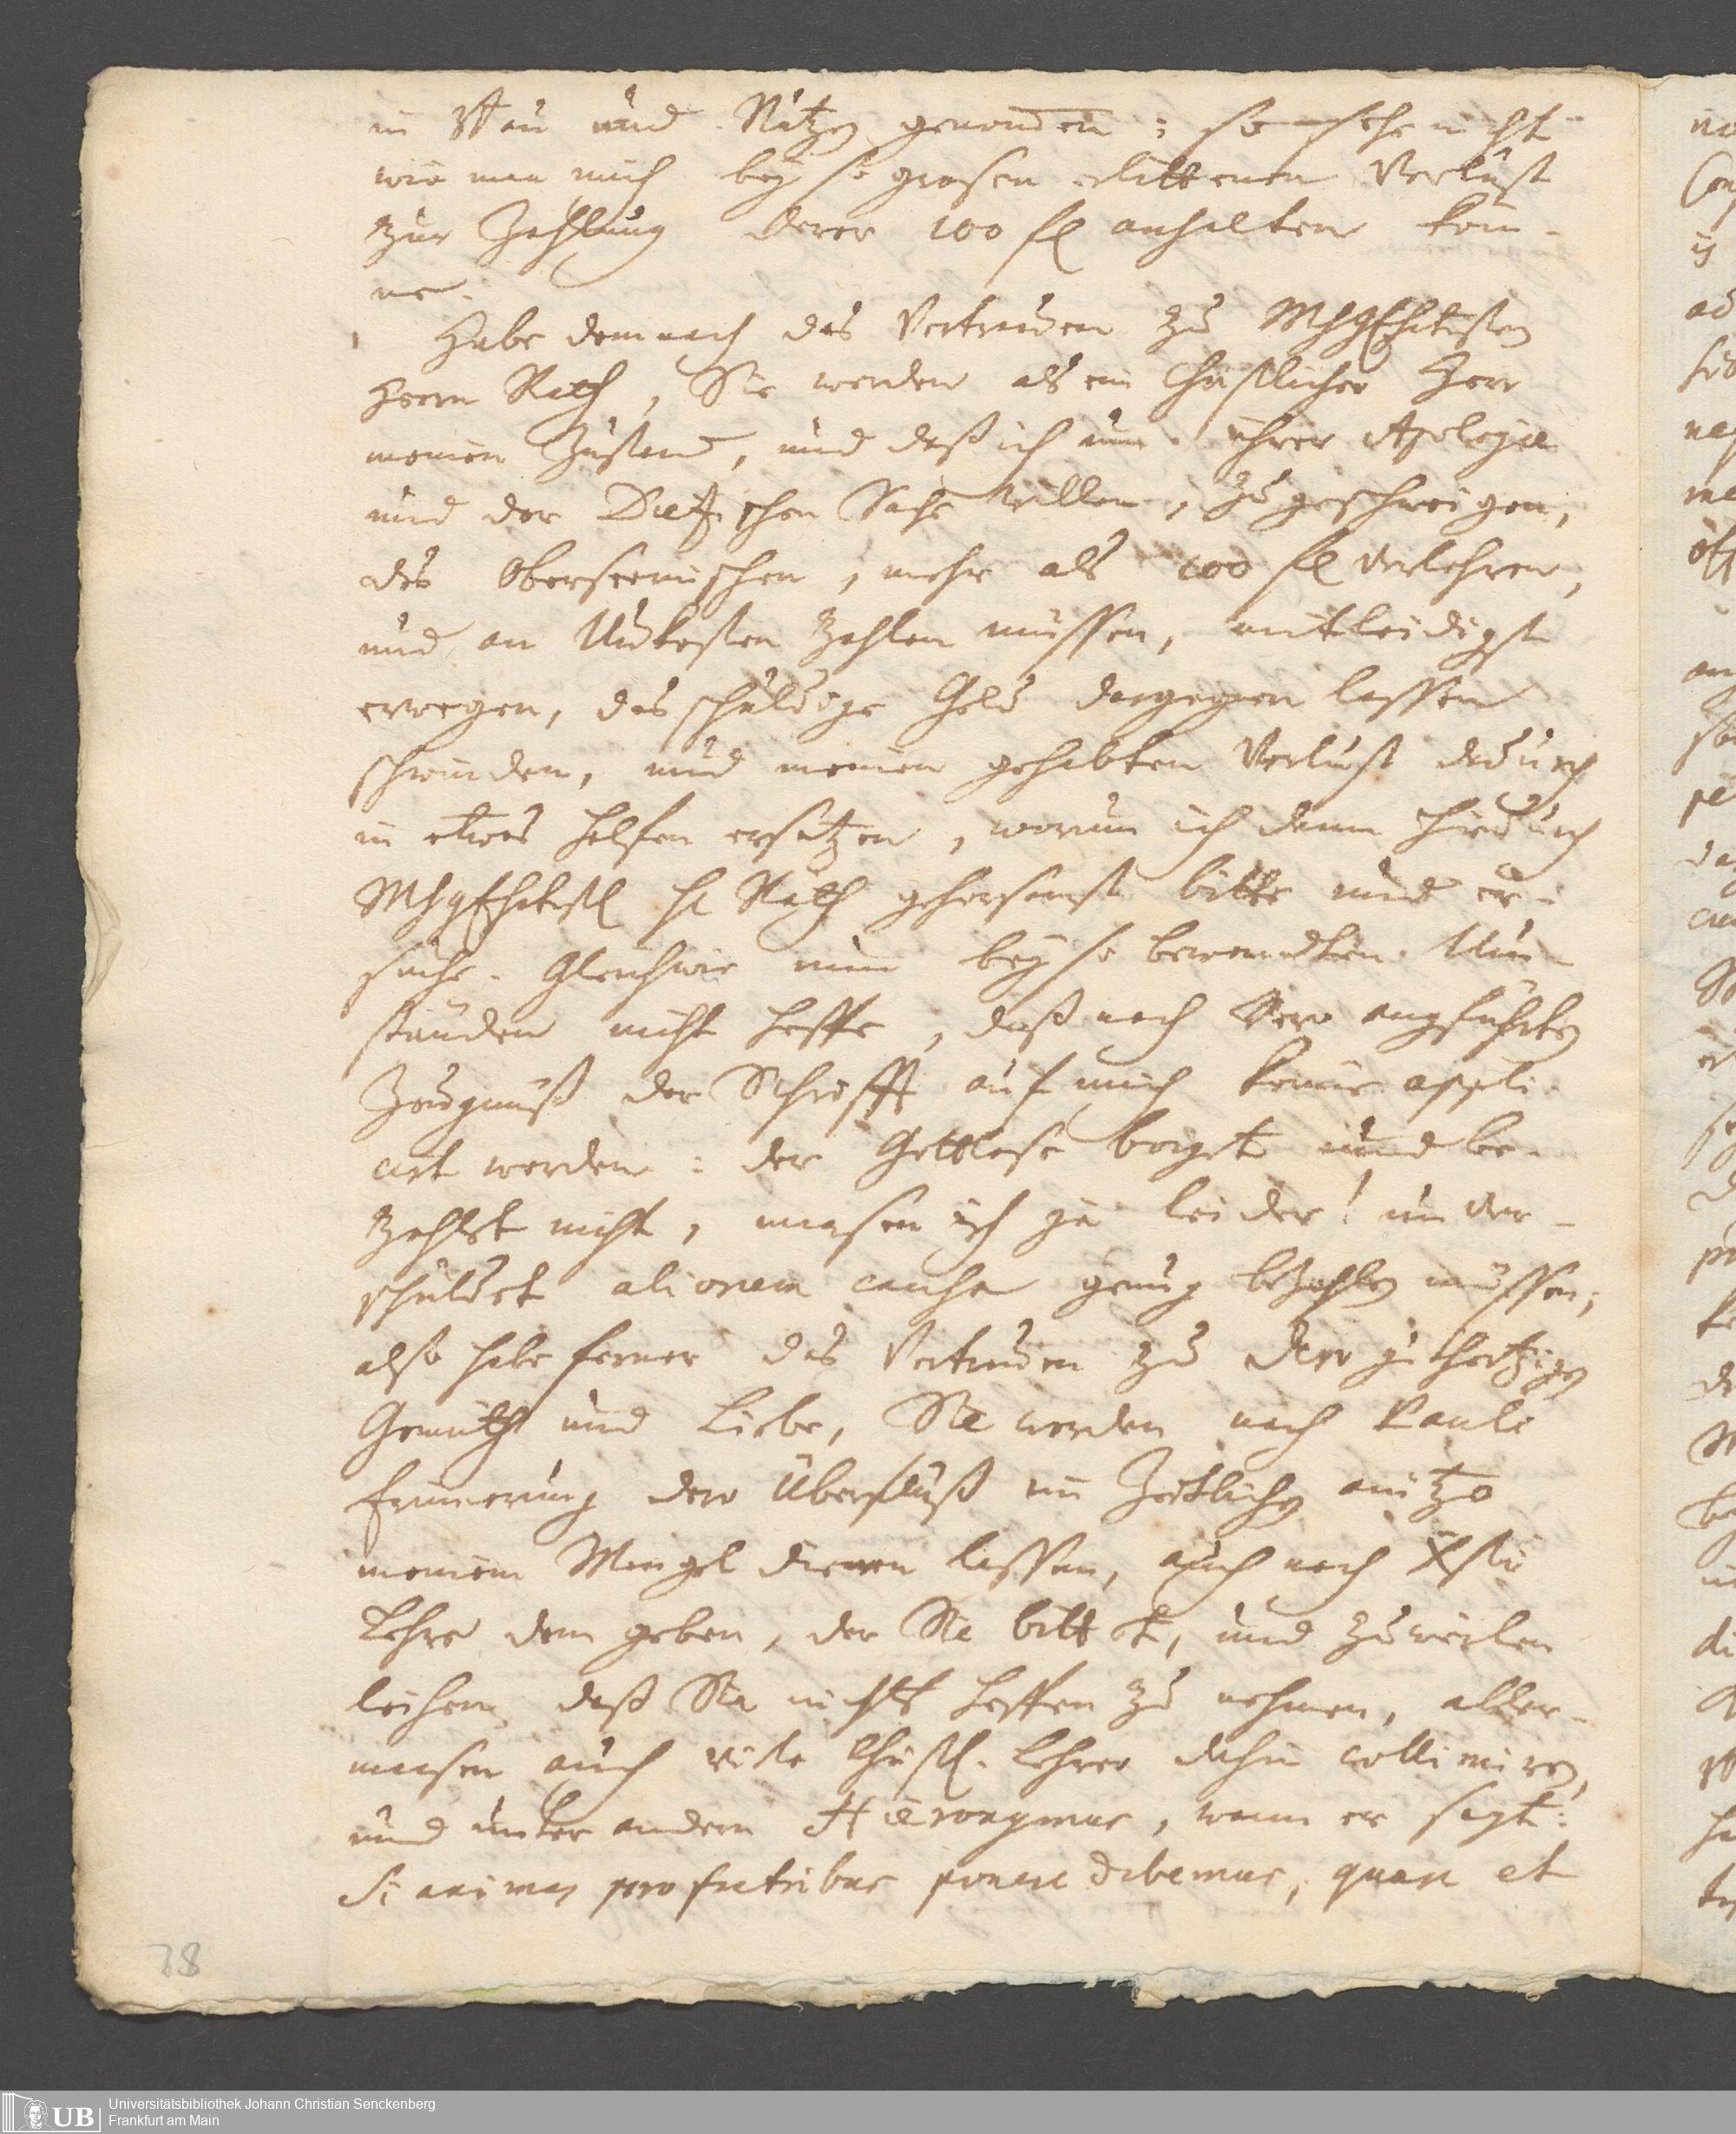 in und Nutzen genommen: so sehe nicht
wie man mich bey so grosen erlittenen Verlust
zur Zahlung derer 100 fl anhalten kön-
ne.
Habe demnach das Vertrauen zu MhgEhrtesten
Herrn Rath, Sie werden als ein Christlicher Herr
meinen Zustand, und daß ich um ihrer Apologie
und der Dietzischen Sache willen, zu geschweigen,
des Oberseemischen, mehr als 100 fl verlohren,
und an Unkosten zahlen müssen, mitleidigst
erwegen, das schuldige Geld dargegen lassen
schwinden, und meinen gehabten Verlust dadurch
in etwas helfen ersetzen, worum ich dann hirdurch
MhgEhrtestl H Rath gehorsamst bitte und er-
suche. Gleichwie nun bey so bewandten Um-
ständen nicht hoffe, daß nach Dero angeführten
Zeugnuß der Schrifft auf mich könne appli-
cirt werden: der Gottlose borget und be-
zahlet nicht, masen ich ja leider! unver-
schuldet aliorum causa genug bezahlen müssen;
also habe ferner das Vertrauen zu Dero gutherzigen
Gemüth und Liebe, Sie werden nach Pauli
Erinnerung dero Überfluß im Zeitlichen anitzo
meinem Mangel dienen lassen, auch nach Xsti
Lehre dem geben, der Sie bittet, und zuweilen
leihen daß Sie nichts hoffen zu nehmen, aller-
masen auch viele Christl. Lehrer dahin collimiren,
und unter andern Hieronymus, wann er sagt:
Si animas pro fratribus ponere debemus, quare et
78
Universitätsbibliothek Johann Christian Senckenberg
Frankfurt am Main
UB